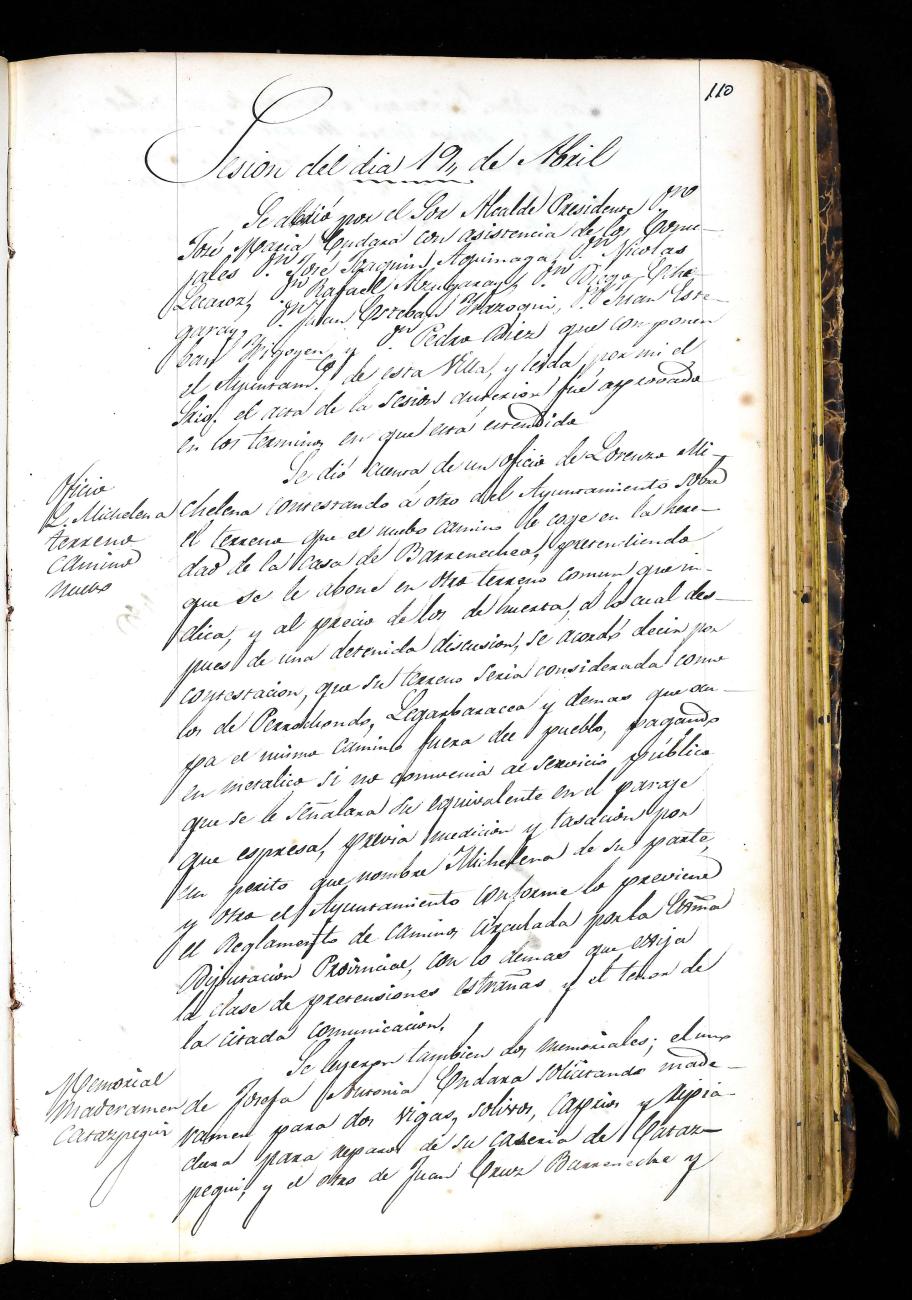 110
Sesion del dia 19,, de Abril
Se abrió por el Sor Alcalde Presidente Dn
José Maria Endara con asistencia de los Conce-
jales Dn José Joaquin Aguinaga, Dn Nicolas
Lecaroz, Dn Rafael Alzugaray, Dn Diego Eche-
garay, Dn Juan Esteban Marzoqui, Dn Juan Este-
ban Irigoyen y Dn Pedro Baez que componen
el Ayuntamto de esta Villa, y leida por mi el
Srio. el acta de la sesion anterior fué aprovada
en los terminos en que está estendida
Oficio
L. Michelena
terreno
camino
nuevo
Se dió cuenta de un oficio de Lorenzo Mi-
chelena contestando á otro del Ayuntamiento sobre
el terreno que el nuebo camino le coge en la here-
dad de la casa de Barrenechea, pretendiendo
que se le abone en otro terreno comun, que in-
dica, y al precio de los de huerta, á lo cual des-
pues de una detenida discusion, se acordó decir por
contestacion, que su terreno seria considerado como
los de Perrochondo, Legarbaracea y demas que ocu-
pa el mismo camino fuera del pueblo, pagando
en metalico si no convenia al servicio público
que se le señalara su equivalente en el paraje
que espresa, previa medicion y tasacion por
un perito que nombre Michelena de su parte,
y otro el Ayuntamiento conforme lo previene
el Reglamento de caminos circulada por la Excma
Diputacion Provincial, con lo demas que exija
la clase de pretensiones estrañas y el tenor de
la citada comunicacion.
Memorial
Maderamen
Catazpegui
Se leyeron tambien dos memoriales; el uno
de Josefa Antonia Endara solicitando made-
ramen para dos vigas, solivos, caprios y ripia-
dura para reparos de su caseria de Cataz-
pegui, y el otro de Juan Cruz Barreneche y